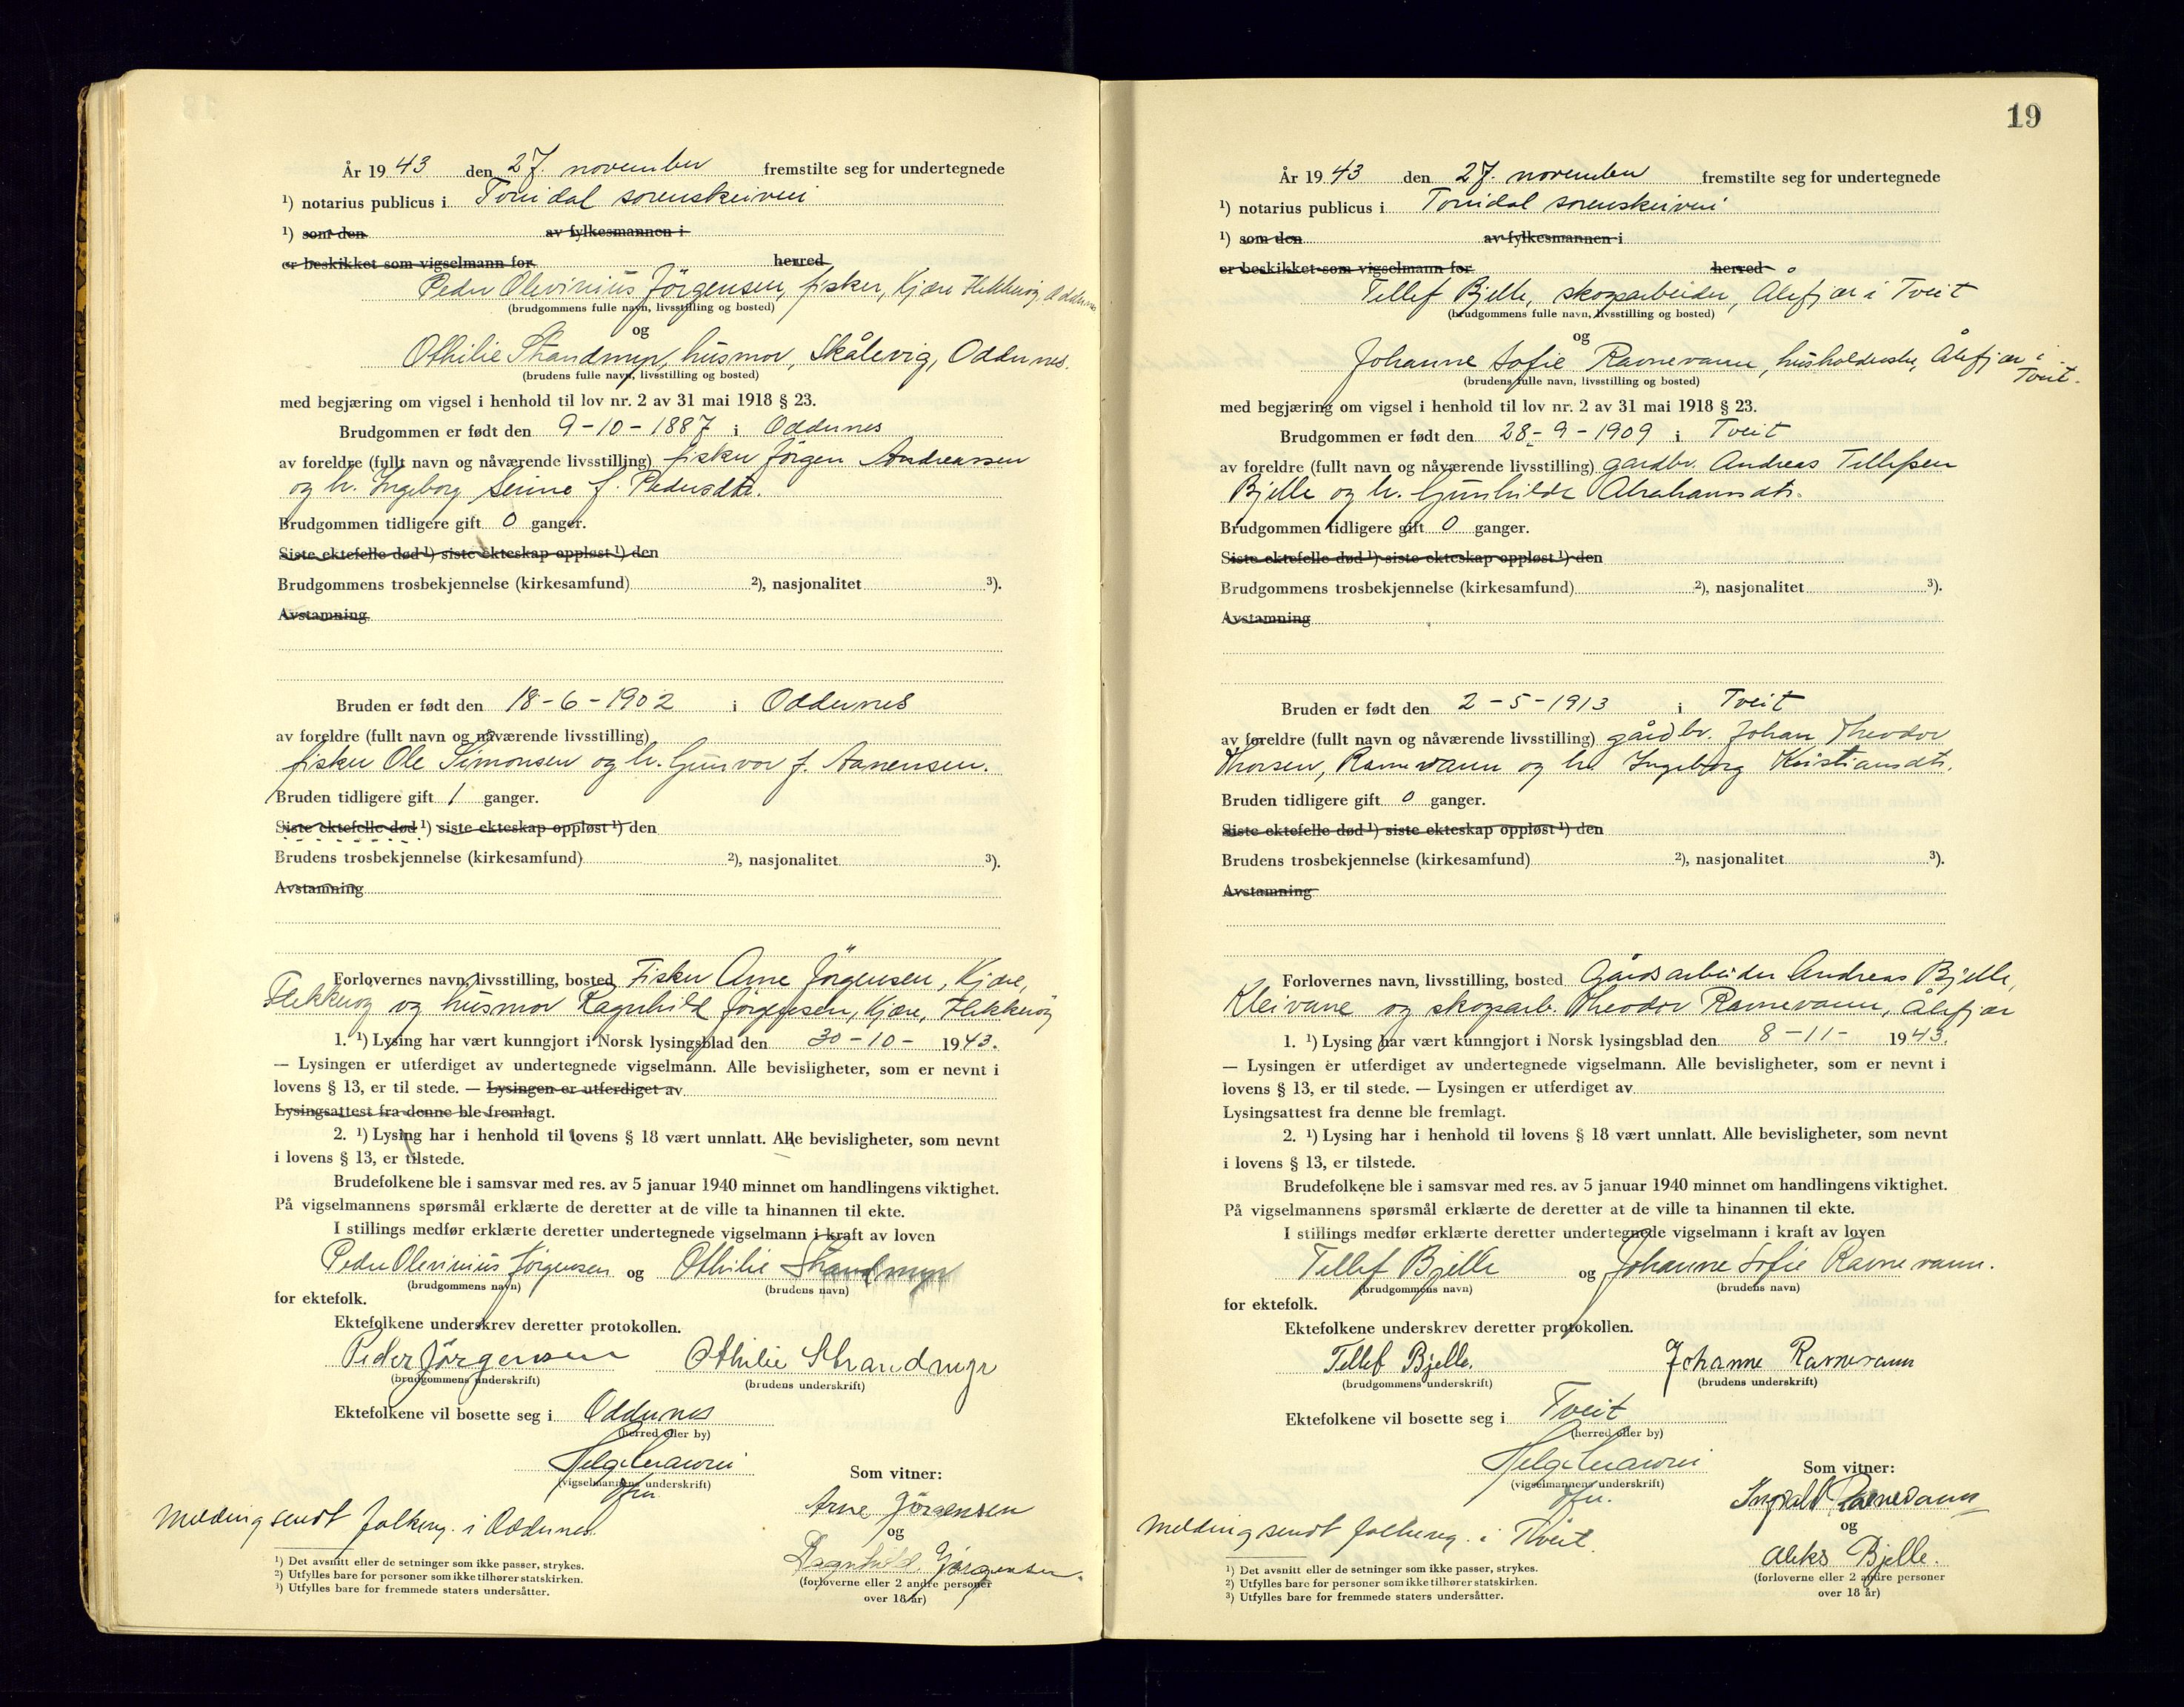 År 1943 den 27. november fremstilte seg for undertegnede
¹) notarius publicus i Torridal sorenskriveri
¹) som den av fylkesmannen i
er beskikket som vigselmann for herred
Peder Olevinius Jörgensen, fisker, Kjære Flekkeröy, Oddernes
(brudgommens fulle navn, livsstilling og bosted)
og
Othilie Strandmyr, husmor, Skålevig, Oddernes.
(brudens fulle navn, livsstilling og bosted)
med begjæring om vigsel i henhold til lov nr. 2 av 31 mai 1918 § 23.
Brudgommen er født den 9-10-1887 i Oddernes
av foreldre (fullt navn og nåværende livsstilling) fisker Jörgen Andreassen
og h. Ingeborg Serine f. Pedersdtr.
Brudgommen tidligere gift 0 ganger.
Siste ektefelle død ¹) siste ekteskap oppløst ¹) den
Brudgommens trosbekjennelse (kirkesamfund) ²), nasjonalitet ³).
Avstamning
Bruden er født den 18-6-1902 i Oddernes
av foreldre (fullt navn og nåværende livsstilling)
fisker Ole Simonsen og h. Gunvor f. Aanensen.
Bruden tidligere gift 1 ganger.
Siste ektefelle død ¹) siste ekteskap oppløst ¹) den
Brudens trosbekjennelse (kirkesamfund) ²), nasjonalitet ³).
Avstamning
Forlovernes navn, livsstilling, bosted Fisker Arne Jörgensen, Kjære,
Flekkeröy og husmor Ragnhild Jörgensen, Kjære, Flekkeröy
1. ¹) Lysing har vært kunngjort i Norsk lysingsblad den 30-10- 1943.
— Lysingen er utferdiget av undertegnede vigselmann. Alle bevisligheter, som er nevnt i
lovens § 13, er til stede. — Lysingen er utferdiget av
Lysingsattest fra denne ble fremlagt.
2. ¹) Lysing har i henhold til lovens § 18 vært unnlatt. Alle bevisligheter, som nevnt
i lovens § 13, er tilstede.
Brudefolkene ble i samsvar med res. av 5 januar 1940 minnet om handlingens viktighet.
På vigselmannens spørsmål erklærte de deretter at de ville ta hinannen til ekte.
I stillings medfør erklærte deretter undertegnede vigselmann i kraft av loven
Peder Olevinius Jörgensen og Othilie Strandmyr
(brudgommens navn) (brudens navn)
for ektefolk.
Ektefolkene underskrev deretter protokollen.
Peder Jörgensen Othilie Strandmyr
(brudgommens underskrift) (brudens underskrift)
Ektefolkene vil bosette seg i Oddernes
(herred eller by)
(vigselmannens underskrift)
Som vitner:
Arne Jörgensen
og
Ragnhild Jörgensen.
(forloverne eller 2 andre personer
over 18 år)
Melding sendt folkereg. i Oddernes.
¹) Det avsnitt eller de setninger som ikke passer, strykes.
²) Utfylles bare for personer som ikke tilhører statskirken.
³) Utfylles bare for fremmede staters undersåtter.
19
År 1943 den 27. november fremstilte seg for undertegnede
¹) notarius publicus i Torridal sorenskriveri
¹) som den av fylkesmannen i
er beskikket som vigselmann for herred
Tellef Bjelle, skogsarbeider, Ålefjær i Tveit
(brudgommens fulle navn, livsstilling og bosted)
og
Johanne Sofie Ravnevann, husholderske, Ålefjær i
Tveit.
(brudens fulle navn, livsstilling og bosted)
med begjæring om vigsel i henhold til lov nr. 2 av 31 mai 1918 § 23.
Brudgommen er født den 28-9-1909 i Tveit
av foreldre (fullt navn og nåværende livsstilling) gårdbr. Andreas Tellefsen
Bjelle og h. Gunhilde Abrahamsdtr.
Brudgommen tidligere gift 0 ganger.
Siste ektefelle død ¹) siste ekteskap oppløst ¹) den
Brudgommens trosbekjennelse (kirkesamfund) ²), nasjonalitet ³).
Avstamning
Bruden er født den 2-5-1913 i Tveit
av foreldre (fullt navn og nåværende livsstilling) gårdbr. Johan Theodor
Thorsen, Ravnevann og h. Ingeborg Kristiansdtr.
Bruden tidligere gift 0 ganger.
Siste ektefelle død ¹) siste ekteskap oppløst ¹) den
Brudens trosbekjennelse (kirkesamfund) ²), nasjonalitet ³).
Avstamning
Forlovernes navn, livsstilling, bosted Gårdsarbeider Andreas Bjelle,
Kleivane og skogsarb. Theodor Ravnevann, Ålefjær
1. ¹) Lysing har vært kunngjort i Norsk lysingsblad den 8-11- 1943.
— Lysingen er utferdiget av undertegnede vigselmann. Alle bevisligheter, som er nevnt i
lovens § 13, er til stede. — Lysingen er utferdiget av
Lysingsattest fra denne ble fremlagt.
2. ¹) Lysing har i henhold til lovens § 18 vært unnlatt. Alle bevisligheter, som nevnt
i lovens § 13, er tilstede.
Brudefolkene ble i samsvar med res. av 5 januar 1940 minnet om handlingens viktighet.
På vigselmannens spørsmål erklærte de deretter at de ville ta hinannen til ekte.
I stillings medfør erklærte deretter undertegnede vigselmann i kraft av loven
Tellef Bjelle og Johanne Sofie Ravnevann.
(brudgommens navn) (brudens navn)
for ektefolk.
Ektefolkene underskrev deretter protokollen.
Tellef Bjelle. Johanne Ravnevann
(brudgommens underskrift) (brudens underskrift)
Ektefolkene vil bosette seg i Tveit
(herred eller by)
(vigselmannens underskrift)
Som vitner:
Ravnevann
og
Aleks Bjelle.
(forloverne eller 2 andre personer
over 18 år)
Melding sendt folkereg. i Tveit.
¹) Det avsnitt eller de setninger som ikke passer, strykes.
²) Utfylles bare for personer som ikke tilhører statskirken.
³) Utfylles bare for fremmede staters undersåtter.